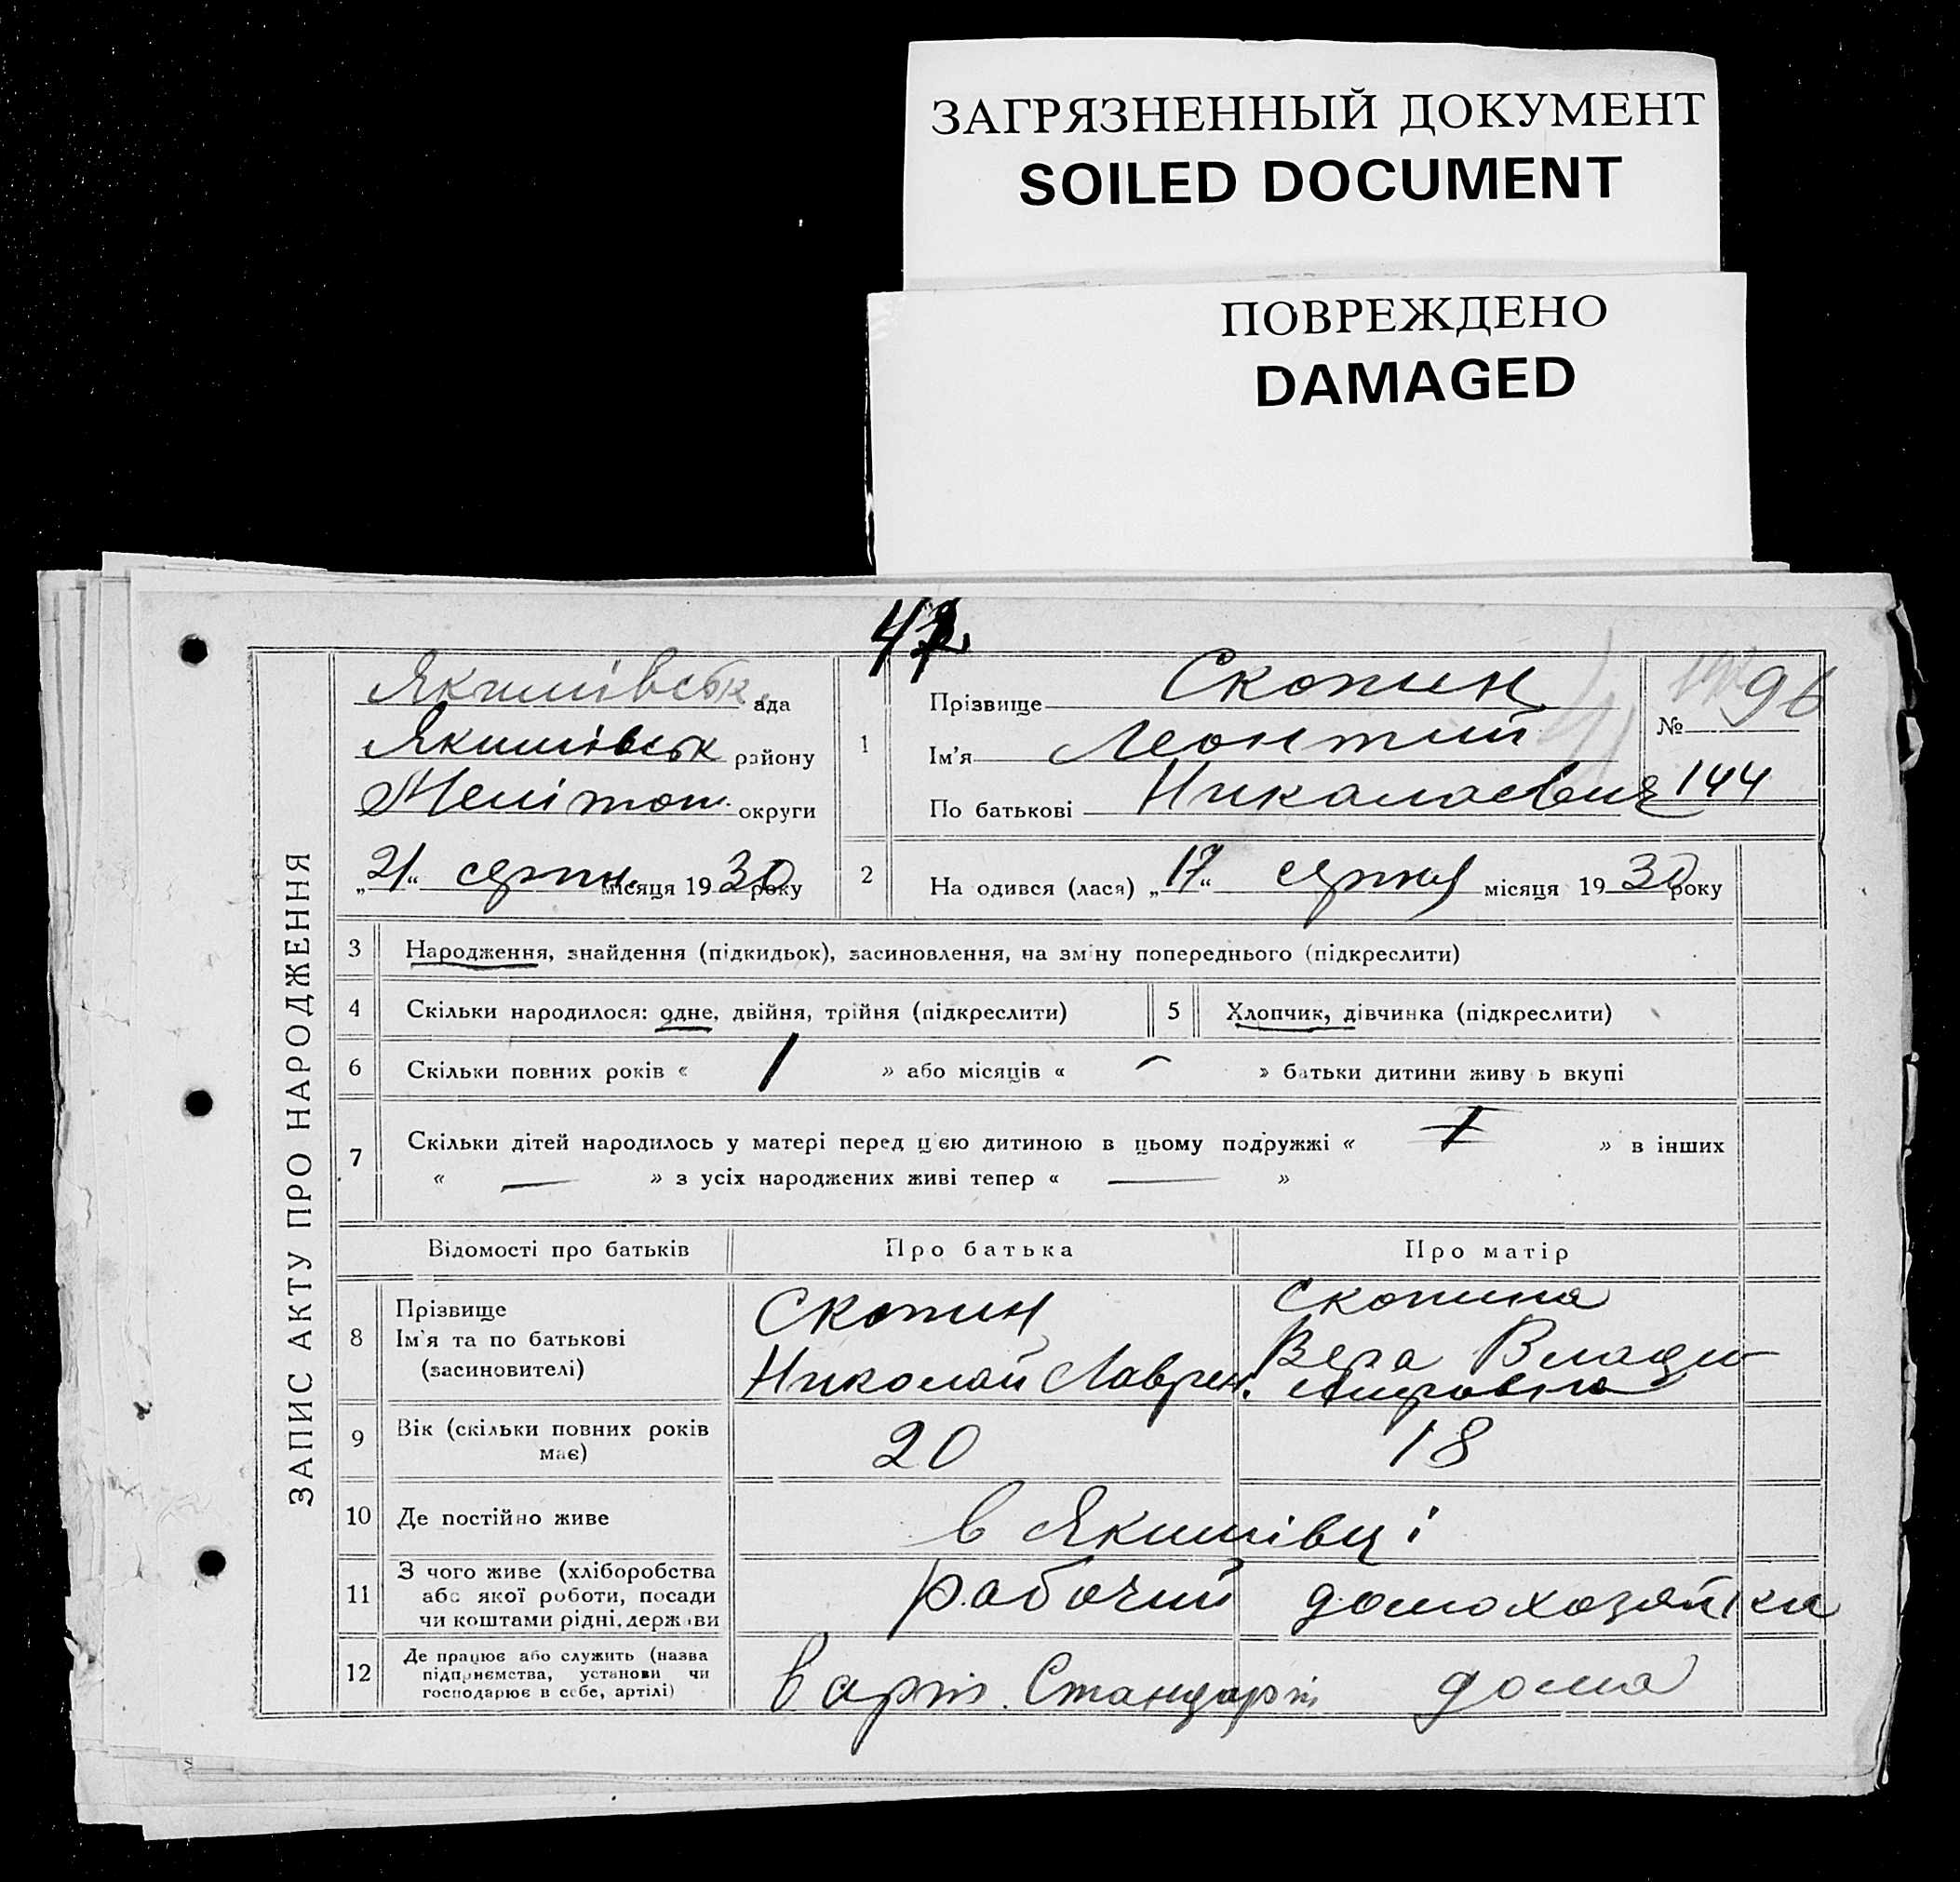 ЗАГРЯЗНЕННЫЙ ДОКУМЕНТ
SOILED DOCUMENT
ПОВРЕЖДЕНО
DAMAGED
ЗАПИС АКТУ ПРО НАРОДЖЕННЯ
Якимівськ ада
Якимівськ району
Мелітоп. округи
„21“ серпн. місяця 1930 року
1
Прізвище Скопин
Ім'я Леонтий
По батькові Николаевич
№ 96
144
2
На одився (лася) „17“ серпня місяця 1930 року
3 Народження, знайдення (підкидьок), засиновлення, на зміну попереднього (підкреслити)
4 Скільки народилося: одне, двійня, трійня (підкреслити)
5 Хлопчик, дівчинка (підкреслити)
6 Скільки повних років « 1 » або місяців « – » батьки дитини живу ь вкупі
7 Скільки дітей народилось у матері перед цією дитиною в цьому подружжі « » в інших
« — » з усіх народжених живі тепер « — »
Відомості про батьків Про батька Про матір
8 Прізвище
Ім'я та по батькові
(засиновителі)
Скопин
Николай Лаврен.
Скопина
Вера Влади
мировна
9 Вік (скільки повних років
має)
20 18
10 Де постійно живе в Якимівці
11 З чого живе (хліборобства
або якої роботи, посади
чи коштами рідні, держ ви
рабочий домохозяйка
12 Де працює або служить (назва
підприємства, установи чи
господарює в себе, артілі)
в арт. Стандарт дома